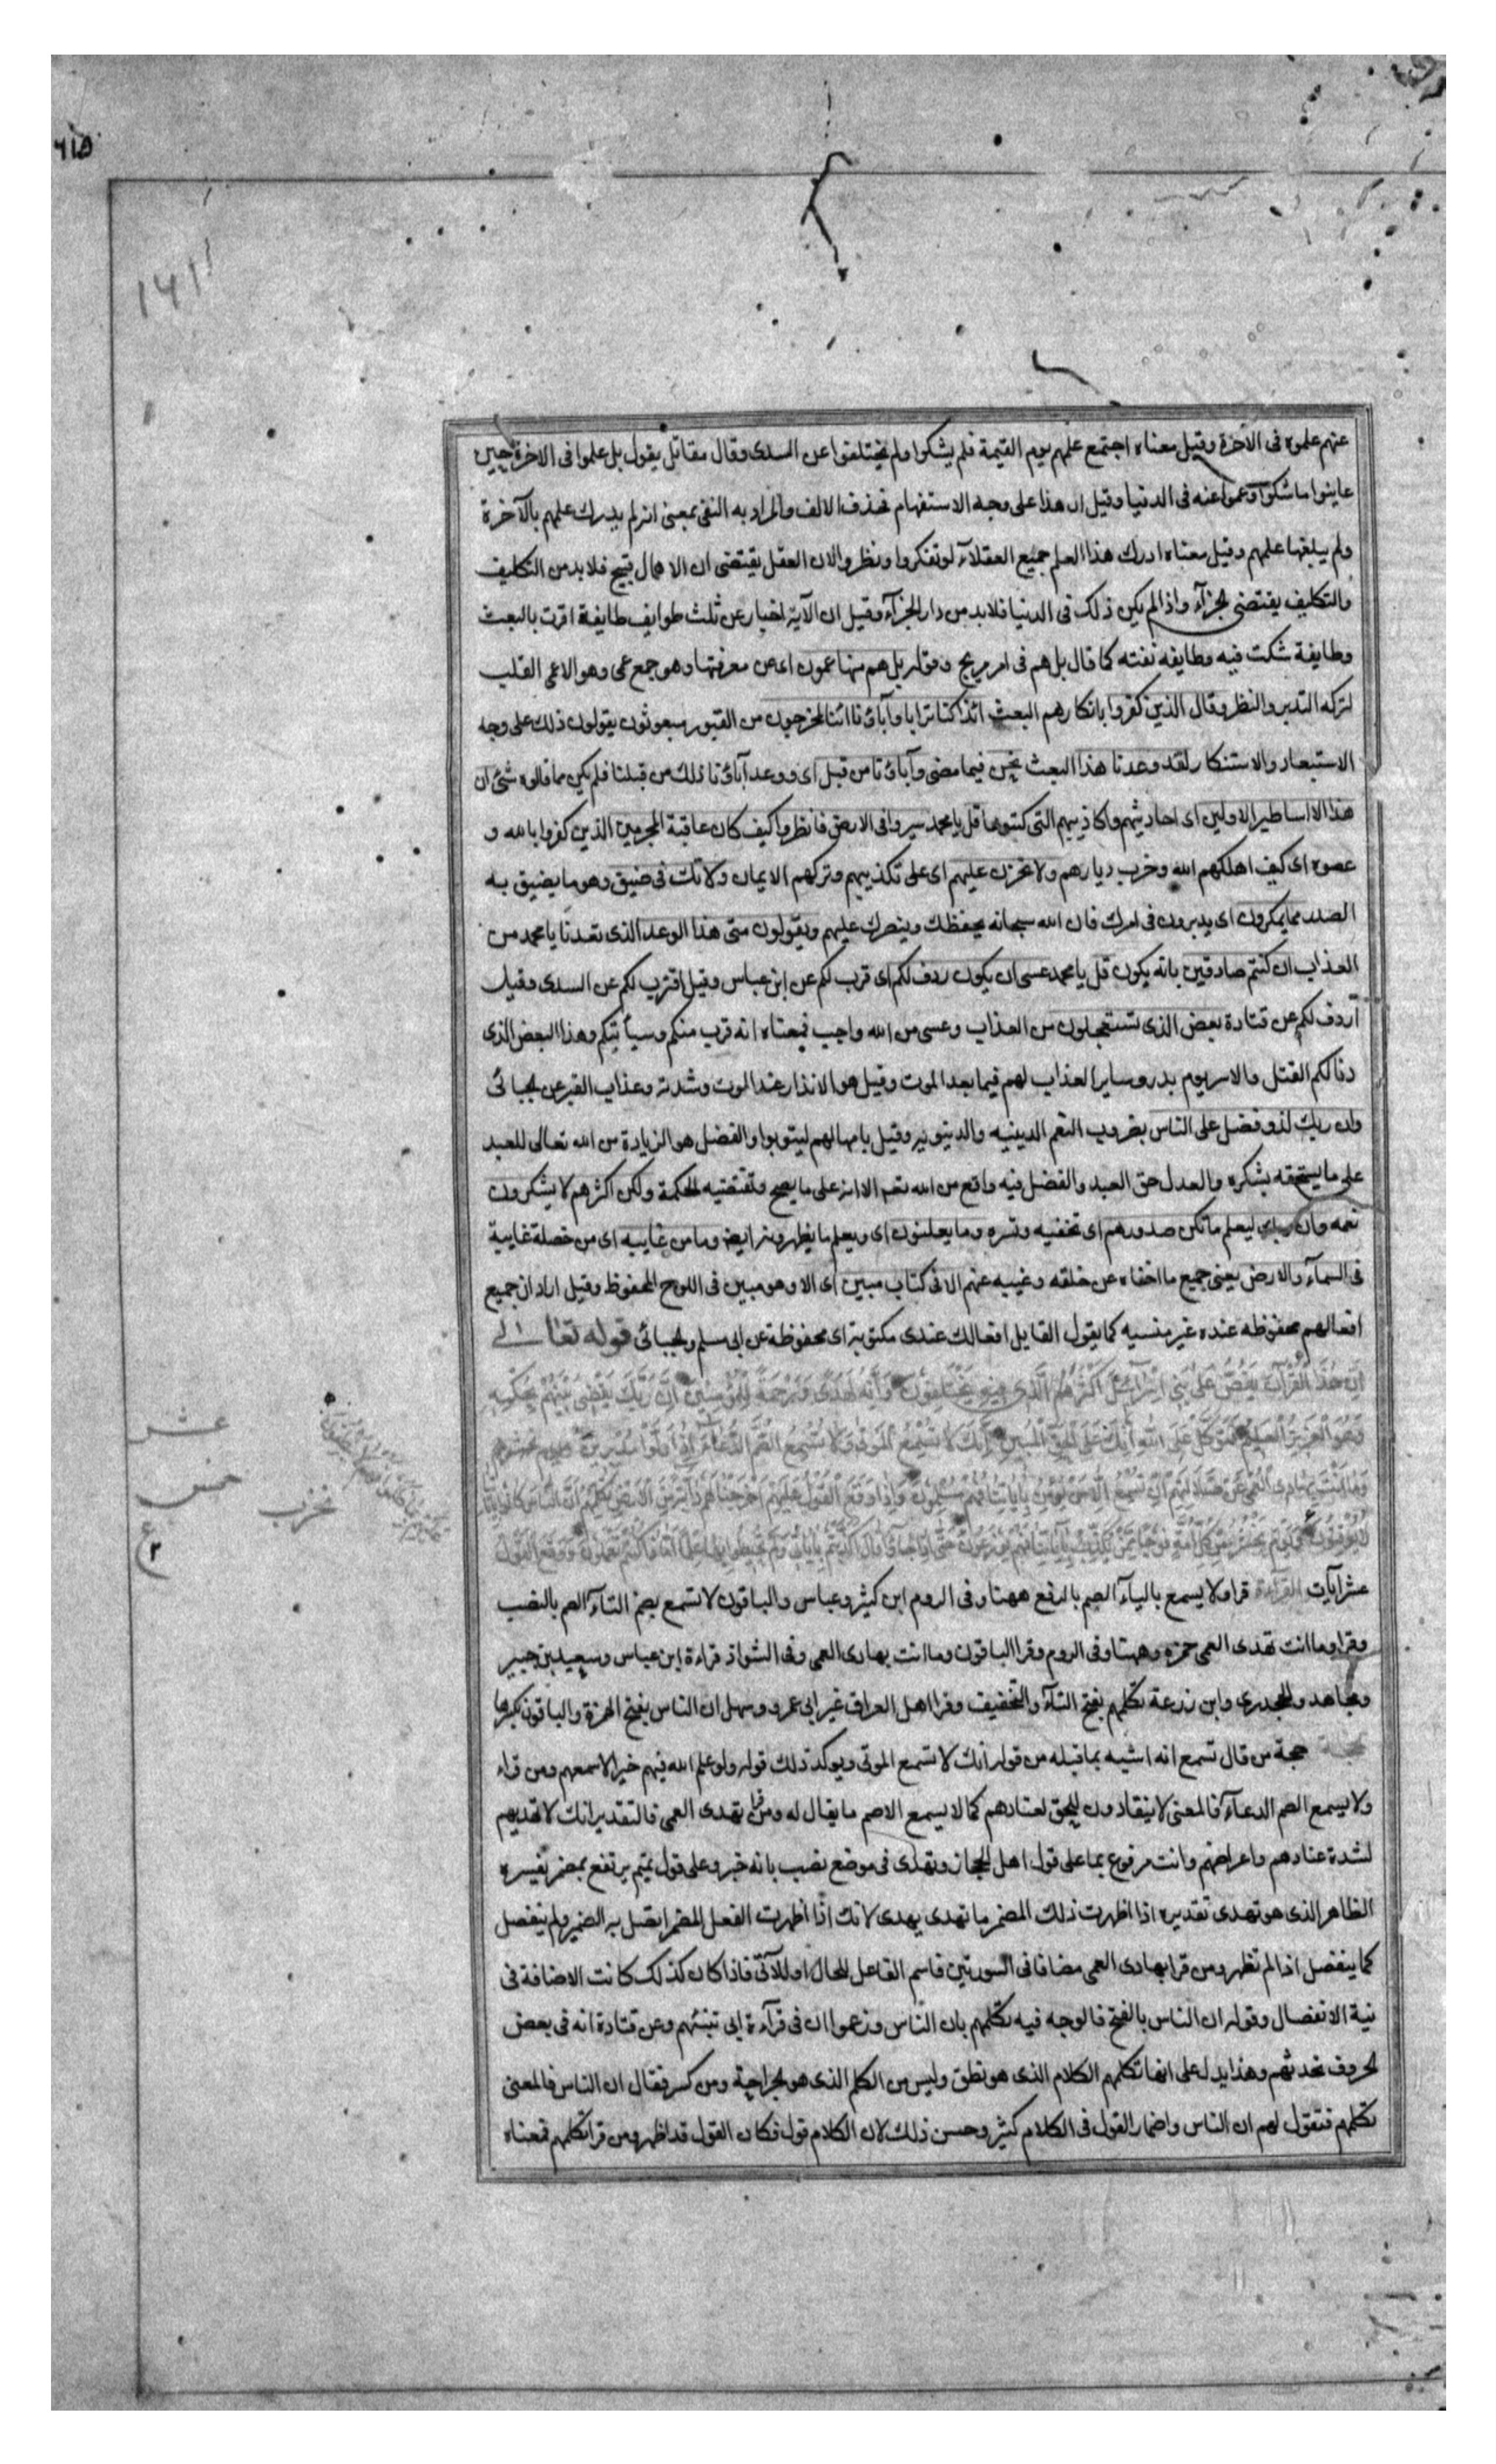 ٦١٥
١٦١
عنهم علموه فى الآخرة وقيل معناه اجتمع علمهم يوم القيمة فلم يشكوا ولم يختلفوا عن السدى وقال مقاتل يقول بل علموا فى الاخرة حين
عاينوا ما شكوا وعموا عنه فى الدنيا وقيل ان هذا على وجه الاستفهام فحذف الالف والمراد به النفى بمعنى انه لم يدرك علمهم بالآخرة
ولم يبلغها علمهم وقيل معناه ادرك هذا العلم جميع العقلاء لو تفكروا ونظروا لان العقل يقتضى ان الاهمال قبيح فلا بد من التكليف
والتكليف يقتضى الجزآء واذا لم يكن ذلك فى الدنيا فلا بد من دار الجزآء وقيل ان الآية اخبار عن ثلث طوايف طايفة اقرت بالبعث
وطايفة شكت فيه وطايفه نفته كما قال بل هم فى امر مريج وقوله بل هم منها عمون اى عن معرفتها وهو جمع عمى وهو الاعمى القلب
لتركه التدبر والنظر وقال الذين كفروا بانكارهم البعث ائذا كنا ترابا وآباؤنا ائنا لمخرجون من القبور مبعوثون يقولون ذلك على وجه
الاستبعاد والاستنكار لقد وعدنا هذا البعث نحن فيما مضى وآباؤنا من قبل اى ووعد آباؤنا ذلك من قبلنا فلم يكن مما قالوه شئ ان
هذا الا اساطير الاولين اى احاديثهم واكاذيبهم التى كتبوها قل يا محمد سيروا فى الارض فانظروا كيف كان عاقبة المجرمين الذين كفروا بالله و
عصوه اى كيف اهلكهم الله وخرب ديارهم ولا تحزن عليهم اى على تكذيبهم وتركهم الايمان ولا تك فى ضيق وهو ما يضيق به
الصدر مما يمكرون اى يدبرون فى امرك فان الله سبحانه يحفظك وينصرك عليهم ويقولون متى هذا الوعد الذى تعدنا يا محمد من
العذاب ان كنتم صادقين بانه يكون قل يا محمد عسى ان يكون ردف لكم اى قرب لكم عن ابن عباس وقيل اقترب لكم عن السدى وقيل
اردف لكم عن قتادة بعض الذى تستعجلون من العذاب وعسى من الله واجب فمعناه انه قرب منكم وسيأتيكم وهذا البعض الذى
دنا لكم القتل والاسر يوم بدر وساير العذاب لهم فيما بعد الموت وقيل هو الانذار عند الموت وشدته وعذاب القبر عن الجبائى
وان ربك لذو فضل على الناس بضروب النعم الدينيه والدنيويه وقيل بامهالهم ليتوبوا والفضل هو الزيادة من الله تعالى للعبد
على ما يستحقه بشكره والعدل حق العبد والفضل فيه واقع من الله تعم الا انه على ما يصح وتقتضيه الحكمة ولكن اكثرهم لا يشكرون
نعمه وان ربك ليعلم ما تكن صدورهم اى تخفيه وتسره وما يعلنون اى ويعلم ما يظهرونه ايضا وما من غايبه اى من خصلة غايبة
فى السمآء والارض يعنى جميع ما اخفاه عن خلقه وغيبه عنهم الا فى كتاب مبين اى الا وهو مبين فى اللوح المحفوظ وقيل اراد ان جميع
افعالهم محفوظه عنده غير منسيه كما يقول القايل افعالك عندى مكتوبة اى محفوظة عن ابى مسلم والجبائى قوله تعالى
اِنَّ هٰذَا الْقُرْآنَ يَقُصُّ عَلٰى بَنِى اِسْرَآئِيلَ اَكْثَرَ الَّذِى هُمْ فِيهِ يَخْتَلِفُونَ وَاِنَّهُ لَهُدًى وَرَحْمَةٌ لِلْمُؤْمِنِينَ اِنَّ رَبَّكَ يَقْضِى بَيْنَهُمْ بِحُكْمِهِ
وَهُوَ الْعَزِيزُ الْعَلِيمُ فَتَوَكَّلْ عَلَى اللهِ اِنَّكَ عَلَى الْحَقِّ الْمُبِينِ اِنَّكَ لَا تُسْمِعُ الْمَوْتٰى وَلَا تُسْمِعُ الصُّمَّ الدُّعَآءَ اِذَا وَلَّوْا مُدْبِرِينَ
وَمَا اَنْتَ بِهَادِى الْعُمْىِ عَنْ ضَلَالَتِهِمْ اِنْ تُسْمِعُ اِلَّا مَنْ يُؤْمِنُ بِآيَاتِنَا فَهُمْ مُسْلِمُونَ وَاِذَا وَقَعَ الْقَوْلُ عَلَيْهِمْ اَخْرَجْنَا لَهُمْ دَآبَّةً مِنَ الْاَرْضِ تُكَلِّمُهُمْ اَنَّ النَّاسَ كَانُوا بِآيَاتِنَا
لَا يُوقِنُونَ وَيَوْمَ نَحْشُرُ مِنْ كُلِّ اُمَّةٍ فَوْجًا مِمَّنْ يُكَذِّبُ بِآيَاتِنَا فَهُمْ يُوزَعُونَ حَتّٰى اِذَا جَآؤُا قَالَ اَكَذَّبْتُمْ بِآيَاتِى وَلَمْ تُحِيطُوا بِهَا عِلْمًا اَمَّاذَا كُنْتُمْ تَعْمَلُونَ وَوَقَعَ الْقَوْلُ
عشر
خمس
حزب
عشر آيات القرآءة قرا ولا يسمع باليآء الصم بالرفع ههنا وفى الروم ابن كثير وعباس والباقون لا تسمع بضم التآء الصم بالنصب
وقرا وما انت تهدى العمى حمزه وههنا وفى الروم وقرا الباقون وما انت بهادى العمى وفى الشواذ قراءة ابن عباس وسعيد بن جبير
ومجاهد والجحدرى وابن زرعة تكلمهم بفتح التآء والتخفيف وقرا اهل العراق غير ابى عمرو وسهل ان الناس بفتح الهمزة والباقون بكسرها
حجة من قال تسمع انه اشبه بما قبله من قوله انك لا تسمع الموتى ويؤكد ذلك قوله ولو علم الله فيهم خيرا لاسمعهم ومن قراء
ولا يسمع الصم الدعآء فالمعنى لا ينقادون للحق لعنادهم كما لا يسمع الاصم ما يقال له ومن قرا تهدى العمى فالتقدير انك لا تهديهم
لشدة عنادهم واعراضهم وانت مرفوع بما على قول اهل الحجاز وتهدى فى موضع نصب بانه خبر وعلى قول تميم يرتفع بمضمر يفسره
الظاهر الذى هو تهدى تقديره اذا اظهرت ذلك المضمر ما تهدى يهدى لانك اذا اظهرت الفعل المضمر اتصل به الضمير ولم ينفصل
كما ينفصل اذا لم تظهر ومن قرا بهادى العمى مضافا فى السورتين فاسم الفاعل للحال او للآتى فاذا كان كذلك كانت الاضافة فى
نية الانفصال وقوله ان الناس بالفتح فالوجه فيه تكلمهم بان الناس وزعموا ان فى قرآءة ابى تنبئهم وعن قتادة انه فى بعض
الحروف تحدثهم وهذا يدل على انها تكلمهم الكلام الذى هو نطق وليس من الكلم الذى هو الجراحة ومن كسر فقال ان الناس فالمعنى
تكلمهم فتقول لهم ان الناس واضمار القول فى الكلام كثير وحسن ذلك لان الكلام قول فكان القول قد اظهر ومن قرا تكلمهم فمعناه